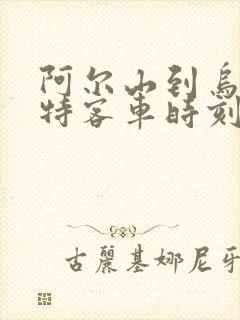 阿尔山到乌
特客车时刻
古丽基娜尼牙